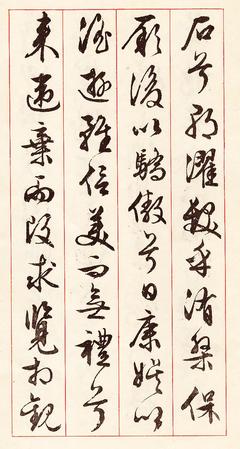 石兮朝濯髮乎洧槃保
厥以驕傲兮日康娛以
淫遊雖信美而無禮兮
來違棄而改求覽相觀